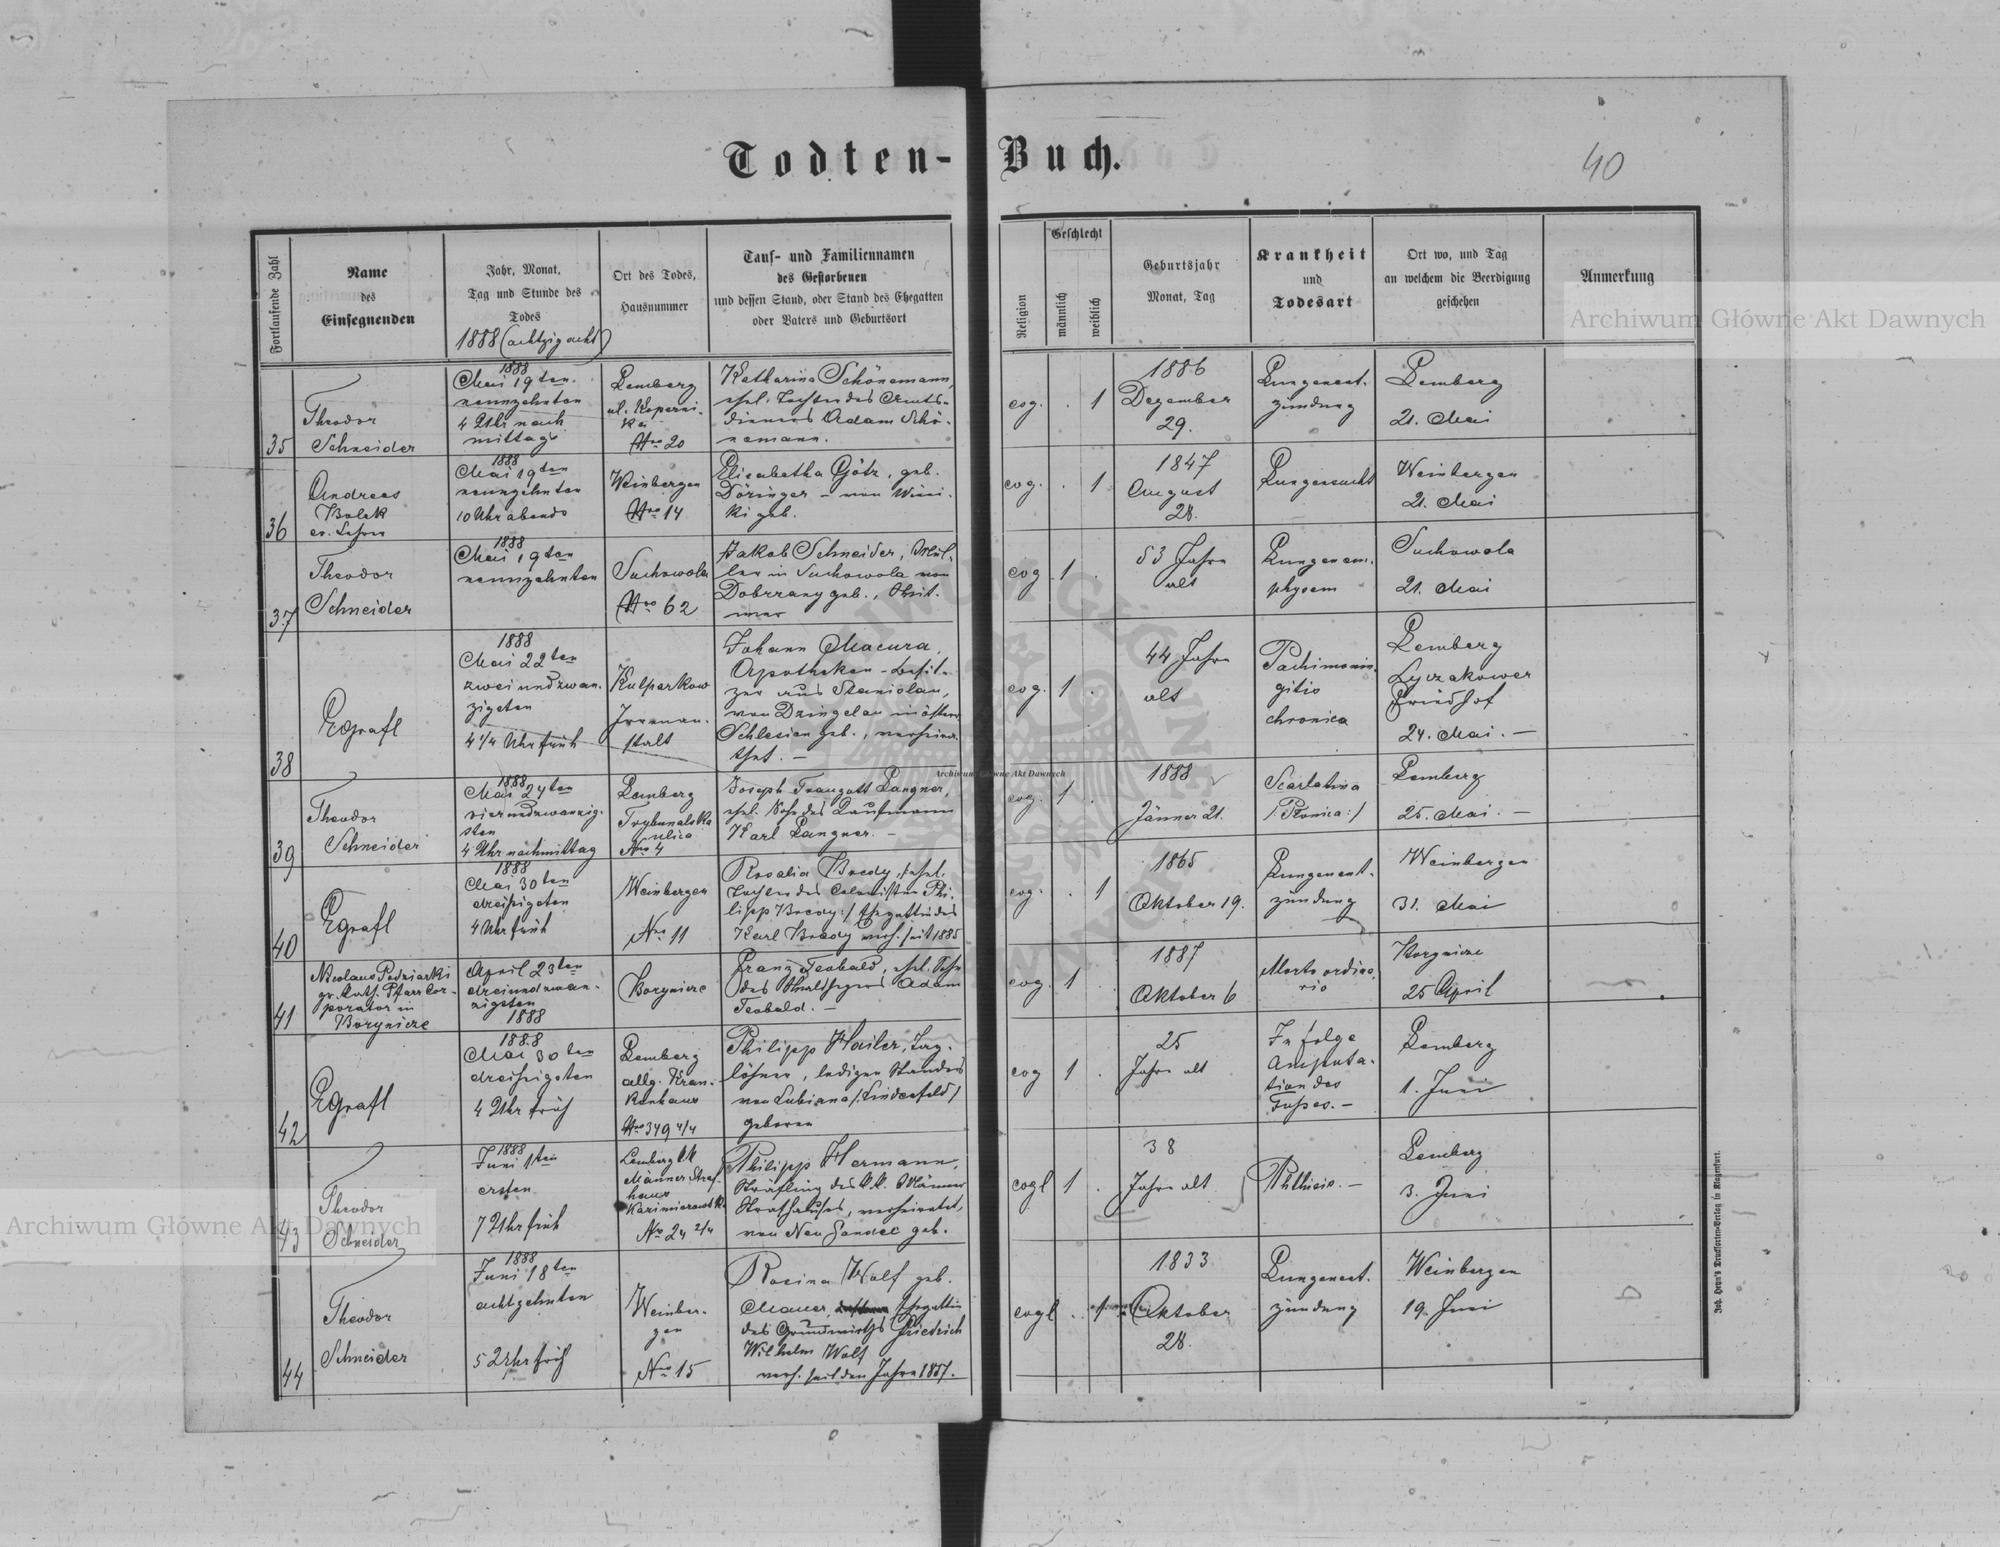 Todten-Buch.
40
Fortlaufende Zahl
Name
des
Einsegnenden
Jahr, Monat,
Tag und Stunde des
Todes
1888 (achtzig acht)
Ort des Todes,
Hausnummer
Tauf- und Familiennamen
des Gestorbenen
und dessen Stand, oder Stand des Ehegatten
oder Vaters und Geburtsort
Religion
Geschlecht
männlich
weiblich
Geburtsjahr
Monat, Tag
Krankheit
und
Todesart
Ort wo, und Tag
an welchem die Beerdigung
geschehen
Anmerkung
35
Theodor
Schneider
1888
Mai 19ten
neunzehnten
4 Uhr nach
mittags
Lemberg
ul. Koperni-
ka
Nro 20
Katharina Schönemann,
ehel. Tochter des Amts-
dieners Adam Schö-
nemann.
evg. . 1
1886
Dezember
29.
Lungenent-
zündung
Lemberg
21. Mai
36
Andreas
Bolek
ev. Lehrer
1888
Mai 19ten
neunzehnten
10 Uhr abends
Weinbergen
Nro 14
Elisabetha Götz, geb.
Döringer - von Wini-
ki geb.
evg. . 1
1847
August
28.
Lungensucht
Weinbergen
21. Mai
37
Theodor
Schneider
1888
Mai 19ten
neunzehnten
Suchowola
Nro 62
Jakob Schneider, Mül-
ler in Suchowola von
Dobrzany geb., Wit-
wer
evg. 1 .
53 Jahre
alt
Lungenem-
physem
Suchowola
21. Mai
38
Egrafl
1888
Mai 22ten
zweiundzwan-
zigsten
4 1/4 Uhr früh
Kulparkow
Irrenan-
stalt
Johann Macura,
Apotheken-Besit-
zer aus Stanislau,
von Dzingelau in östr.
Schlesien geb., verheira-
thet. -
evg. 1 .
44 Jahre
alt
Pachimenin-
gitis
chronica
Lemberg
Lyczakower
Friedhof
24. Mai. -
39
Theodor
Schneider
1888
Mai 24ten
vierundzwanzig-
sten
4 Uhr nachmittag
Lemberg
Trybunalska
ulica
Nro 4
Joseph Traugott Langner,
ehel. Sohn des Kaufmann
Karl Langner. -
evg. 1 .
1888
Jänner 21.
Scarlatina
Lemberg
25. Mai. -
40
Egrafl
1888
Mai 30ten
dreißigsten
4 Uhr früh
Weinbergen
Nro 11
Rosalia Bredy, /ehel.
Tochter des Colonisten Phi-
lipp Bredy:/ Ehegattin des
Karl Bredy verh. seit 1885
evg. . 1
1865
Oktober 19.
Lungenent-
zündung
Weinbergen
31. Mai
41
Nicolaus
gr. kath. Pfarr Cor-
porator in
Borynicze
April 23ten
dreiundzwan-
zigsten
1888
Borynicze
Franz Teobald, ehel. Sohn
des Waldhegers Adam
Teobald. -
evg. 1
1887
Oktober 6
Morte ordina-
rio
Borynicze
25 April
42
Egrafl
1888
Mai 30ten
dreißigsten
4 Uhr früh
Lemberg
allg. Kran-
kenhaus
Nro 349 4/4
Philipp Hailer, Tag-
löhner, ledigen Standes
von Lubiana /:Lindenfeld/
geboren
evg 1 .
25
Jahre alt
In folge
Amputa-
tion des
Fußes. -
Lemberg
1. Juni
43
Theodor
Schneider
1888
Juni 1ten
ersten
7 Uhr früh
Lemberg kk
Männer Straf-
haus
Kazimierowska
Nro 24 2/4
Philipp Hermann,
Sträfling des k.k. Männer
Strafhauses, verheiratet,
von Neu Sandec geb.
evgl 1 .
38
Jahre alt
Phthisis. -
Lemberg
3. Juni
44
Theodor
Schneider
1888
Juni 18ten
achtzehnten
5 Uhr früh
Weinber-
gen
Nro 15
Rosina Wolf geb.
Mauer, Ehegattin
des Grundwirths Friedrich
Wilhelm Wolf
verh. seit dem Jahre 1857.
evgl . 1
1833
Oktober
28.
Lungenent-
zündung
Weinbergen
19. Juni
Joh. Heyn's Drucksorten-Verlag in Klagenfurt.
Archiwum Główne Akt Dawnych
Archiwum Główne Akt Dawnych
Archiwum Główne Akt Dawnych